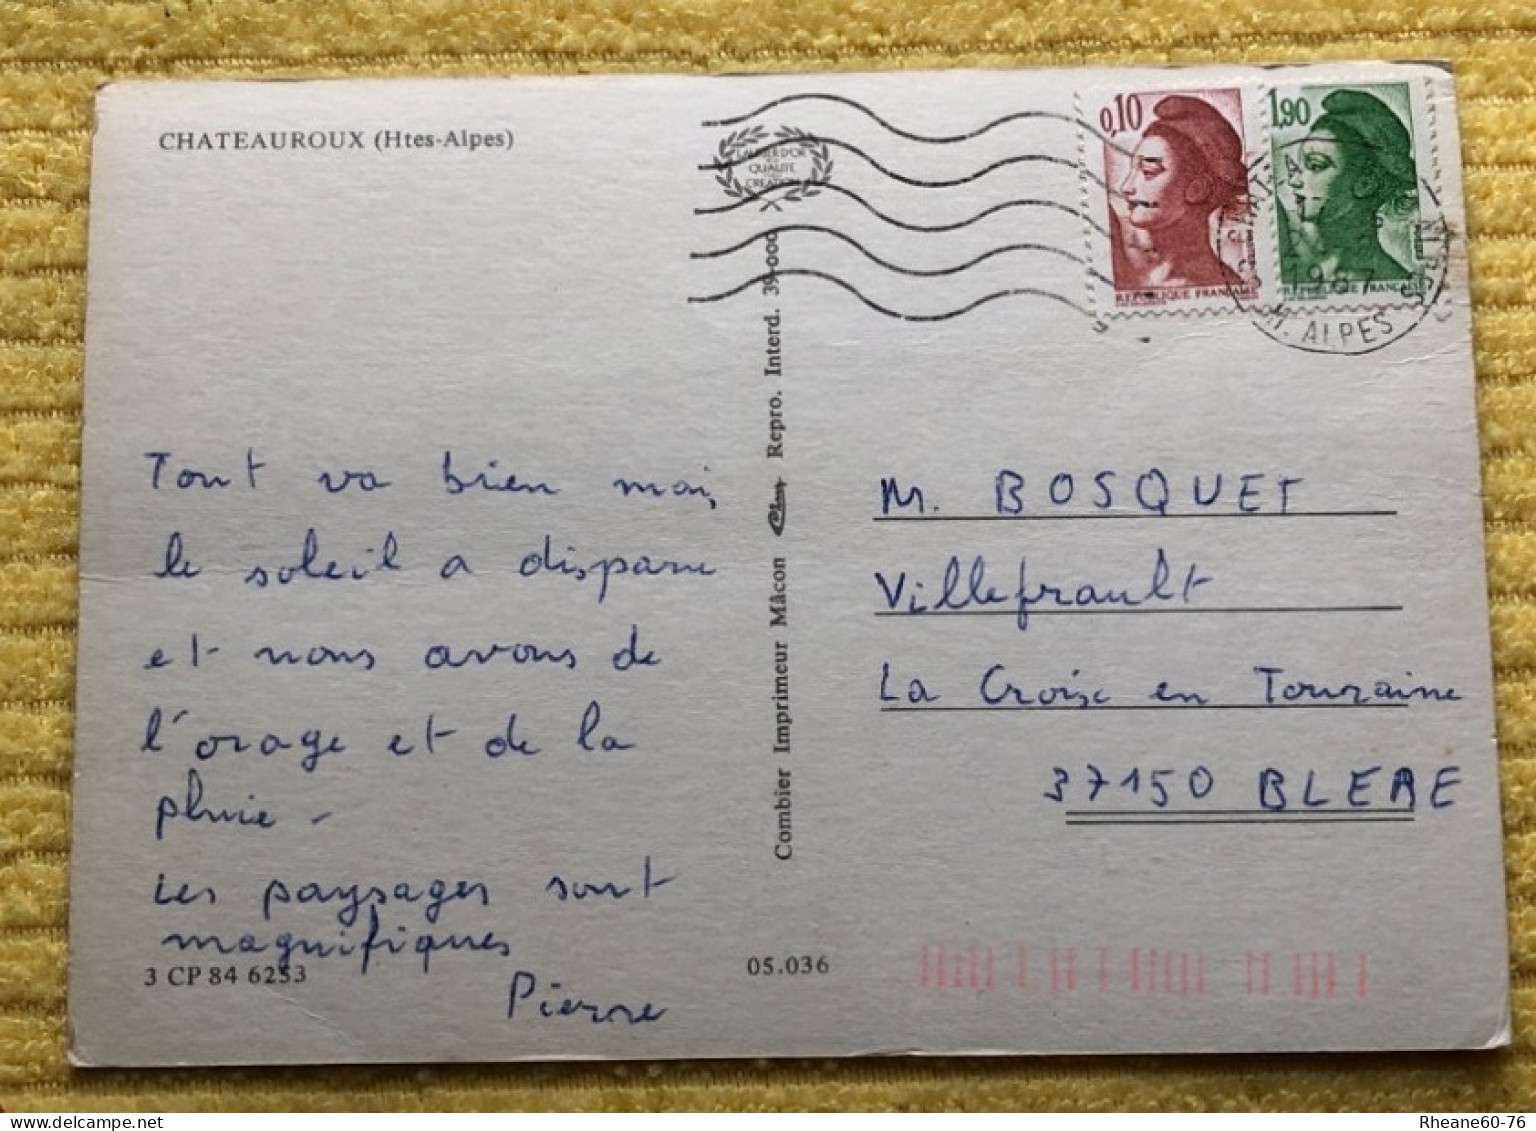 CHATEAUROUX (Htes-Alpes)
QUALITE
0,10
REPUBLIQUE FRANÇAISE
1,90
1987
H. ALPES
Tout va bien mais
le soleil a disparu
et nous avons de
l'orage et de la
pluie -
Les paysages sont
magnifiques
Pierre
3 CP 84 6253
Combier Imprimeur Mâcon Repro. Interd. 39.000
05.036
M. BOSQUET
Villefrault
La Croix en Touraine
37150 BLERE
Rheane60-76